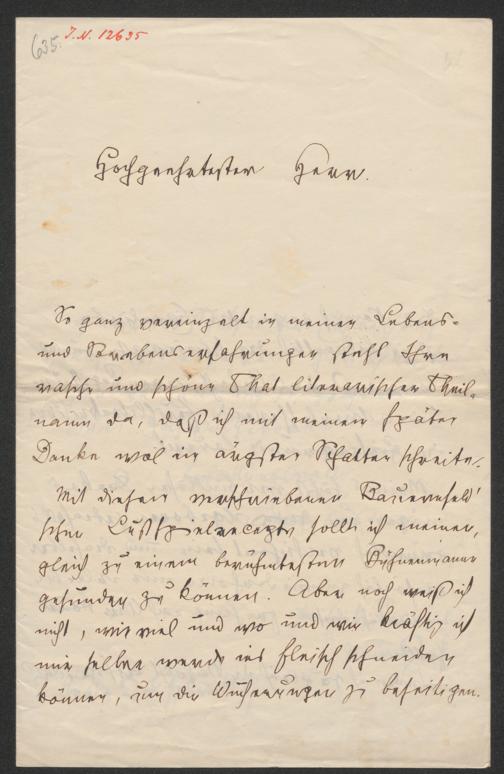 635.
J.N. 12635
Hochgeehrtester Herr.
So ganz vereinzelt in meinen Lebens-
und Strebenserfahrungen steht Ihre
rasche und schöne That literarischer Theil-
name da, daß ich mit meinem späten
Danke wol in ärgsten Schatten schreite.
Mit diesem verschriebenen Bauernfeld'
schen Lustspielrecepte sollte ich meinen,
gleich zu einem berühmtesten Bühnenmanne
gesunden zu können. Aber noch weiß ich
nicht, wie viel und wo und wie kräftig ich
mir selber werde ins Fleisch schneiden
können, um die Wucherungen zu beseitigen.